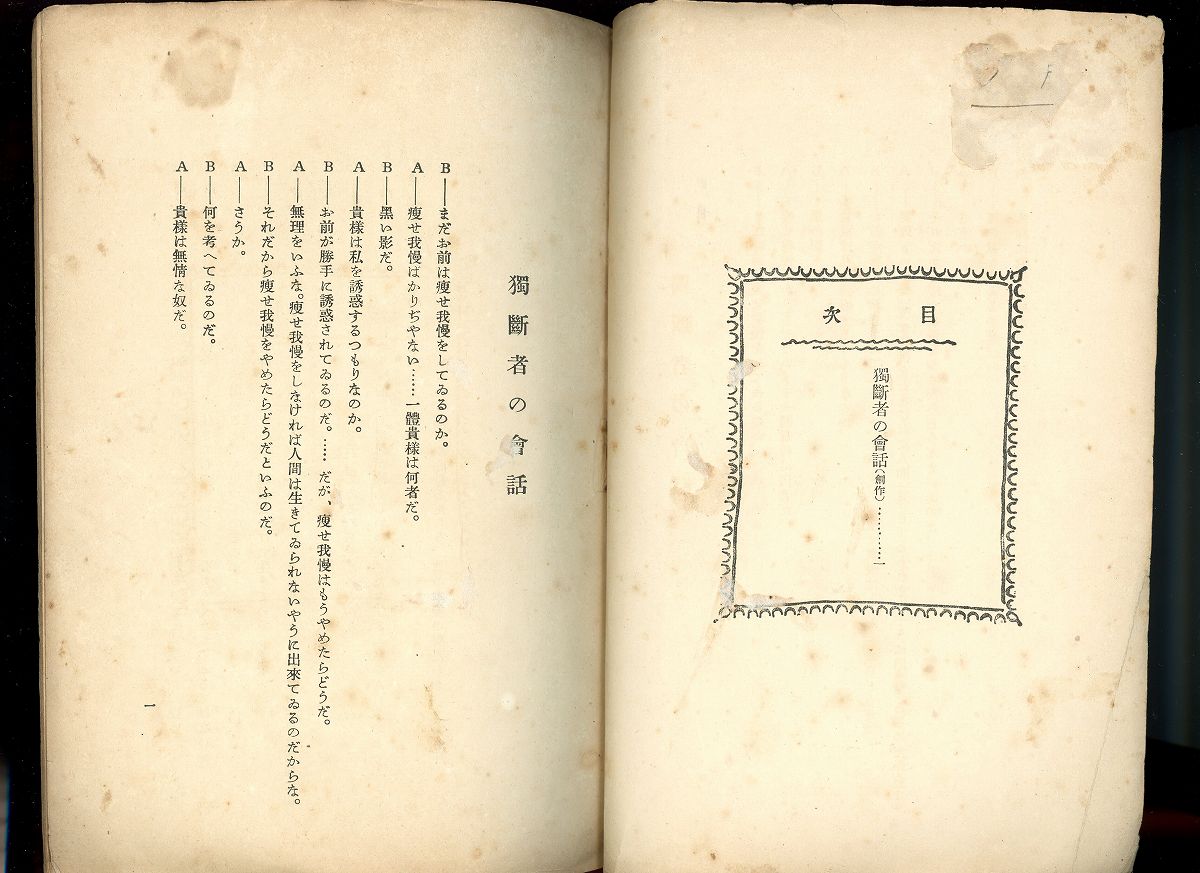 目次
獨斷者の會話(創作)…………一
獨斷者の會話
B――まだお前は痩せ我慢をしてゐるのか。
A――痩せ我慢ばかりぢやない……一體貴樣は何者だ。
B――黑い影だ。
A――貴樣は私を誘惑するつもりなのか。
B――お前が勝手に誘惑されてゐるのだ。……だが、痩せ我慢はもうやめたらどうだ。
A――無理をいふな。痩せ我慢をしなければ人間は生きてゐられないやうに出來てゐるのだからな。
B――それだから痩せ我慢をやめたらどうだといふのだ。
A――さうか。
B――何を考へてゐるのだ。
A――貴樣は無情な奴だ。
一